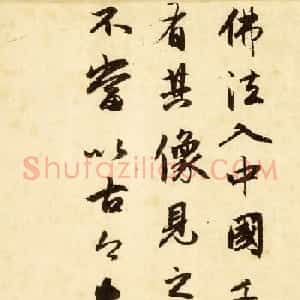 佛法入中國
有其像見之
不當以古今
Shufaziliao.com